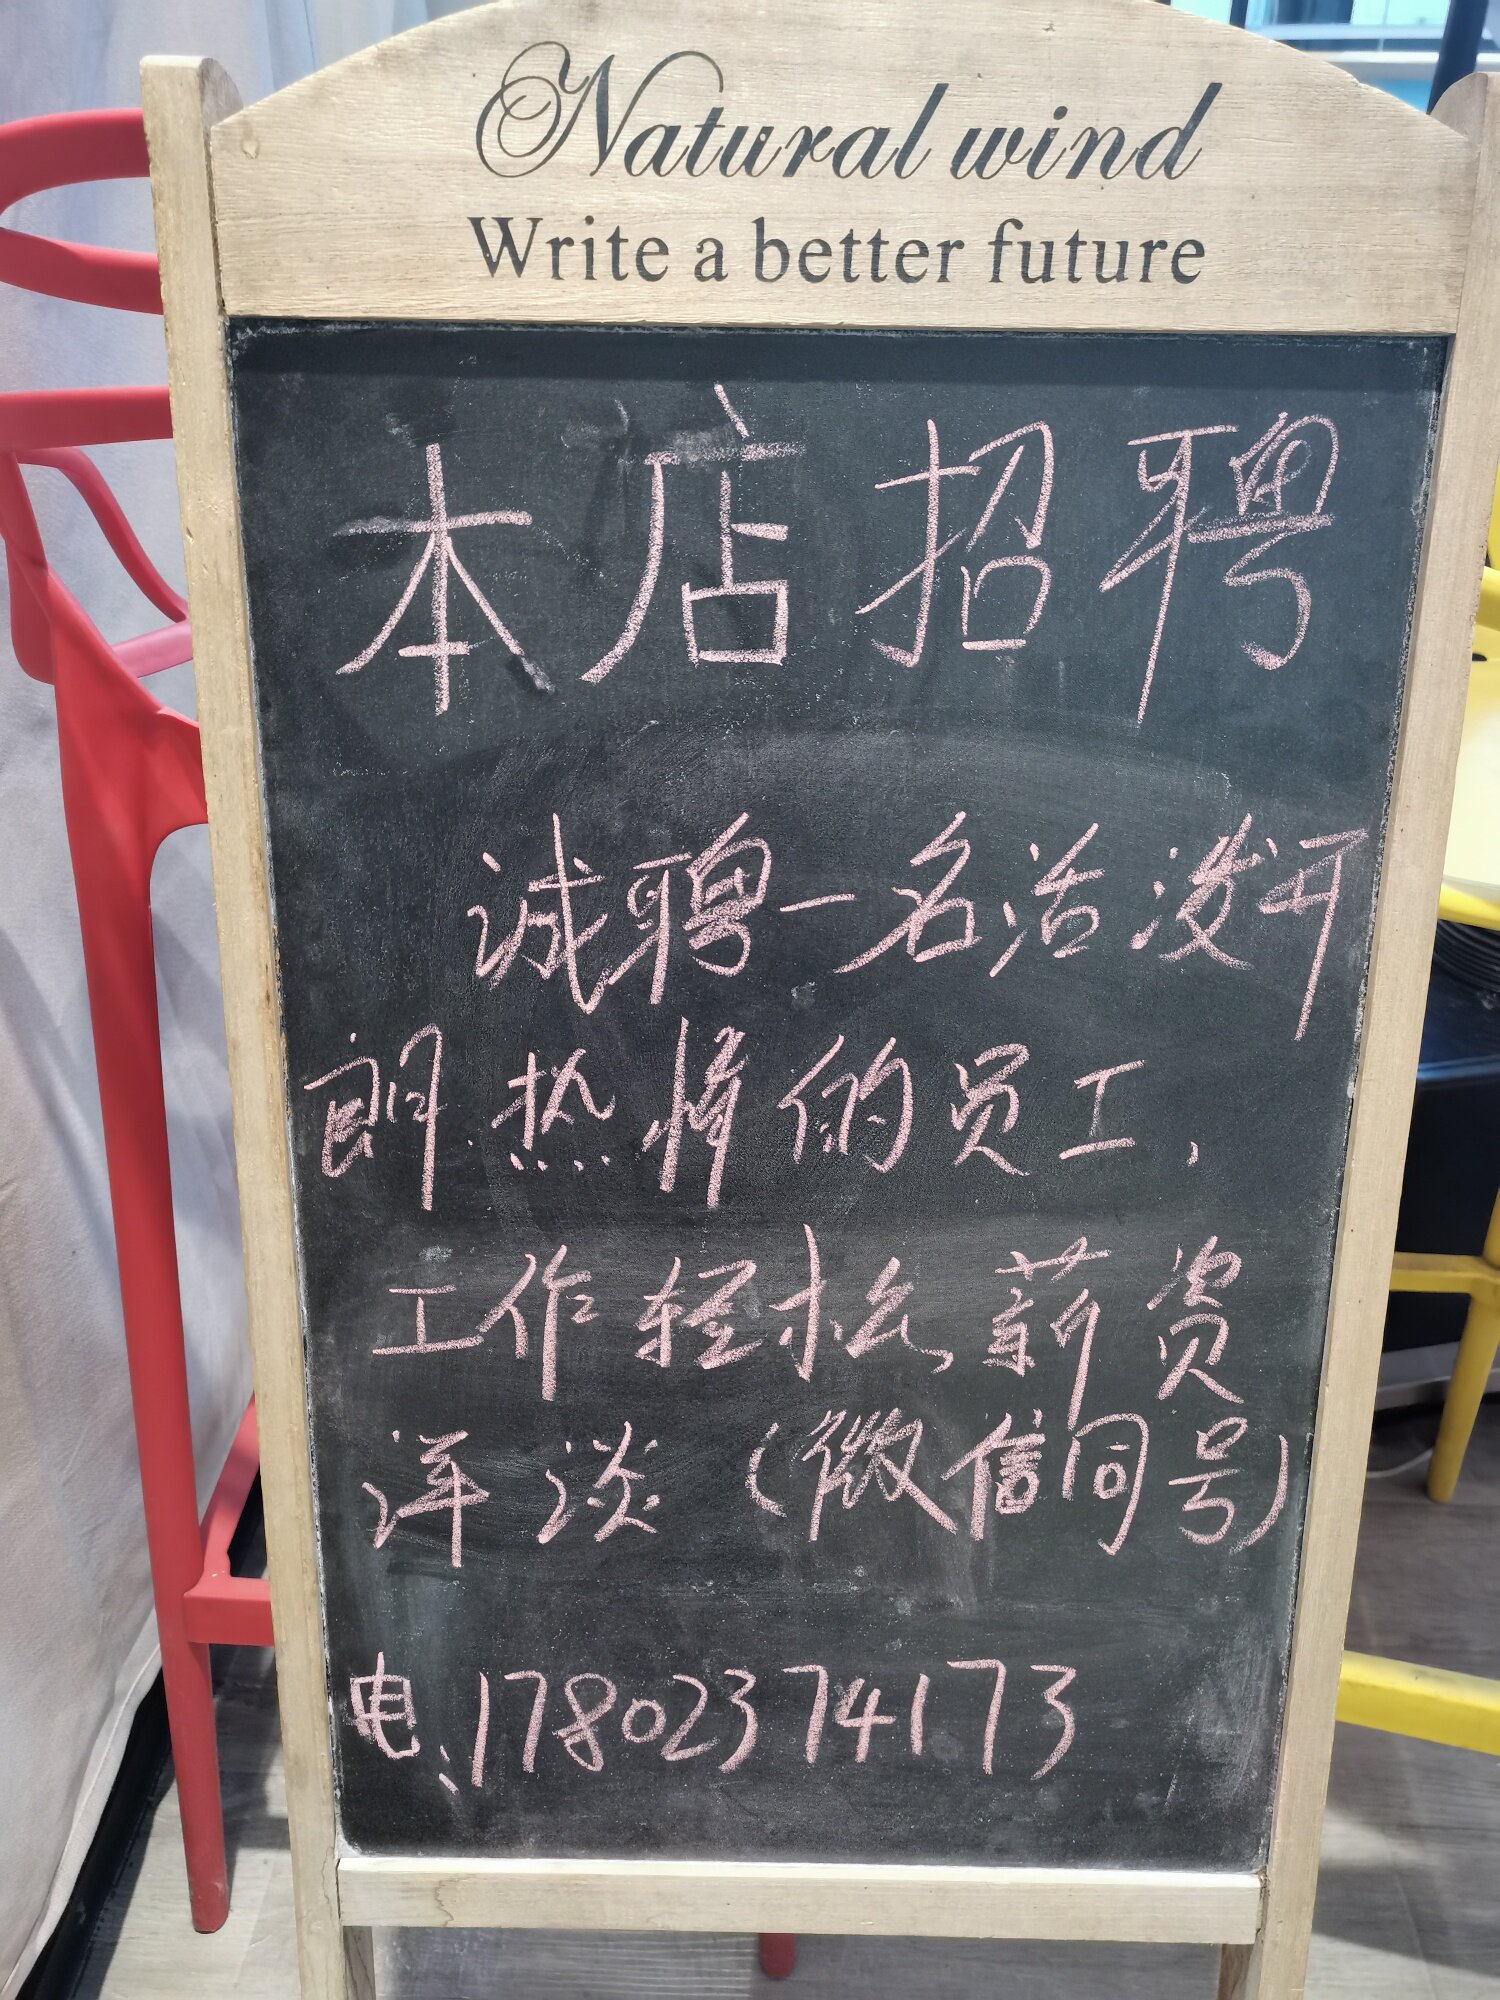 Natural wind
Write a better future
本店招聘
诚聘一名活泼开
朗.热情的员工,
工作轻松,薪资
详谈(微信同号)
电:17802374173